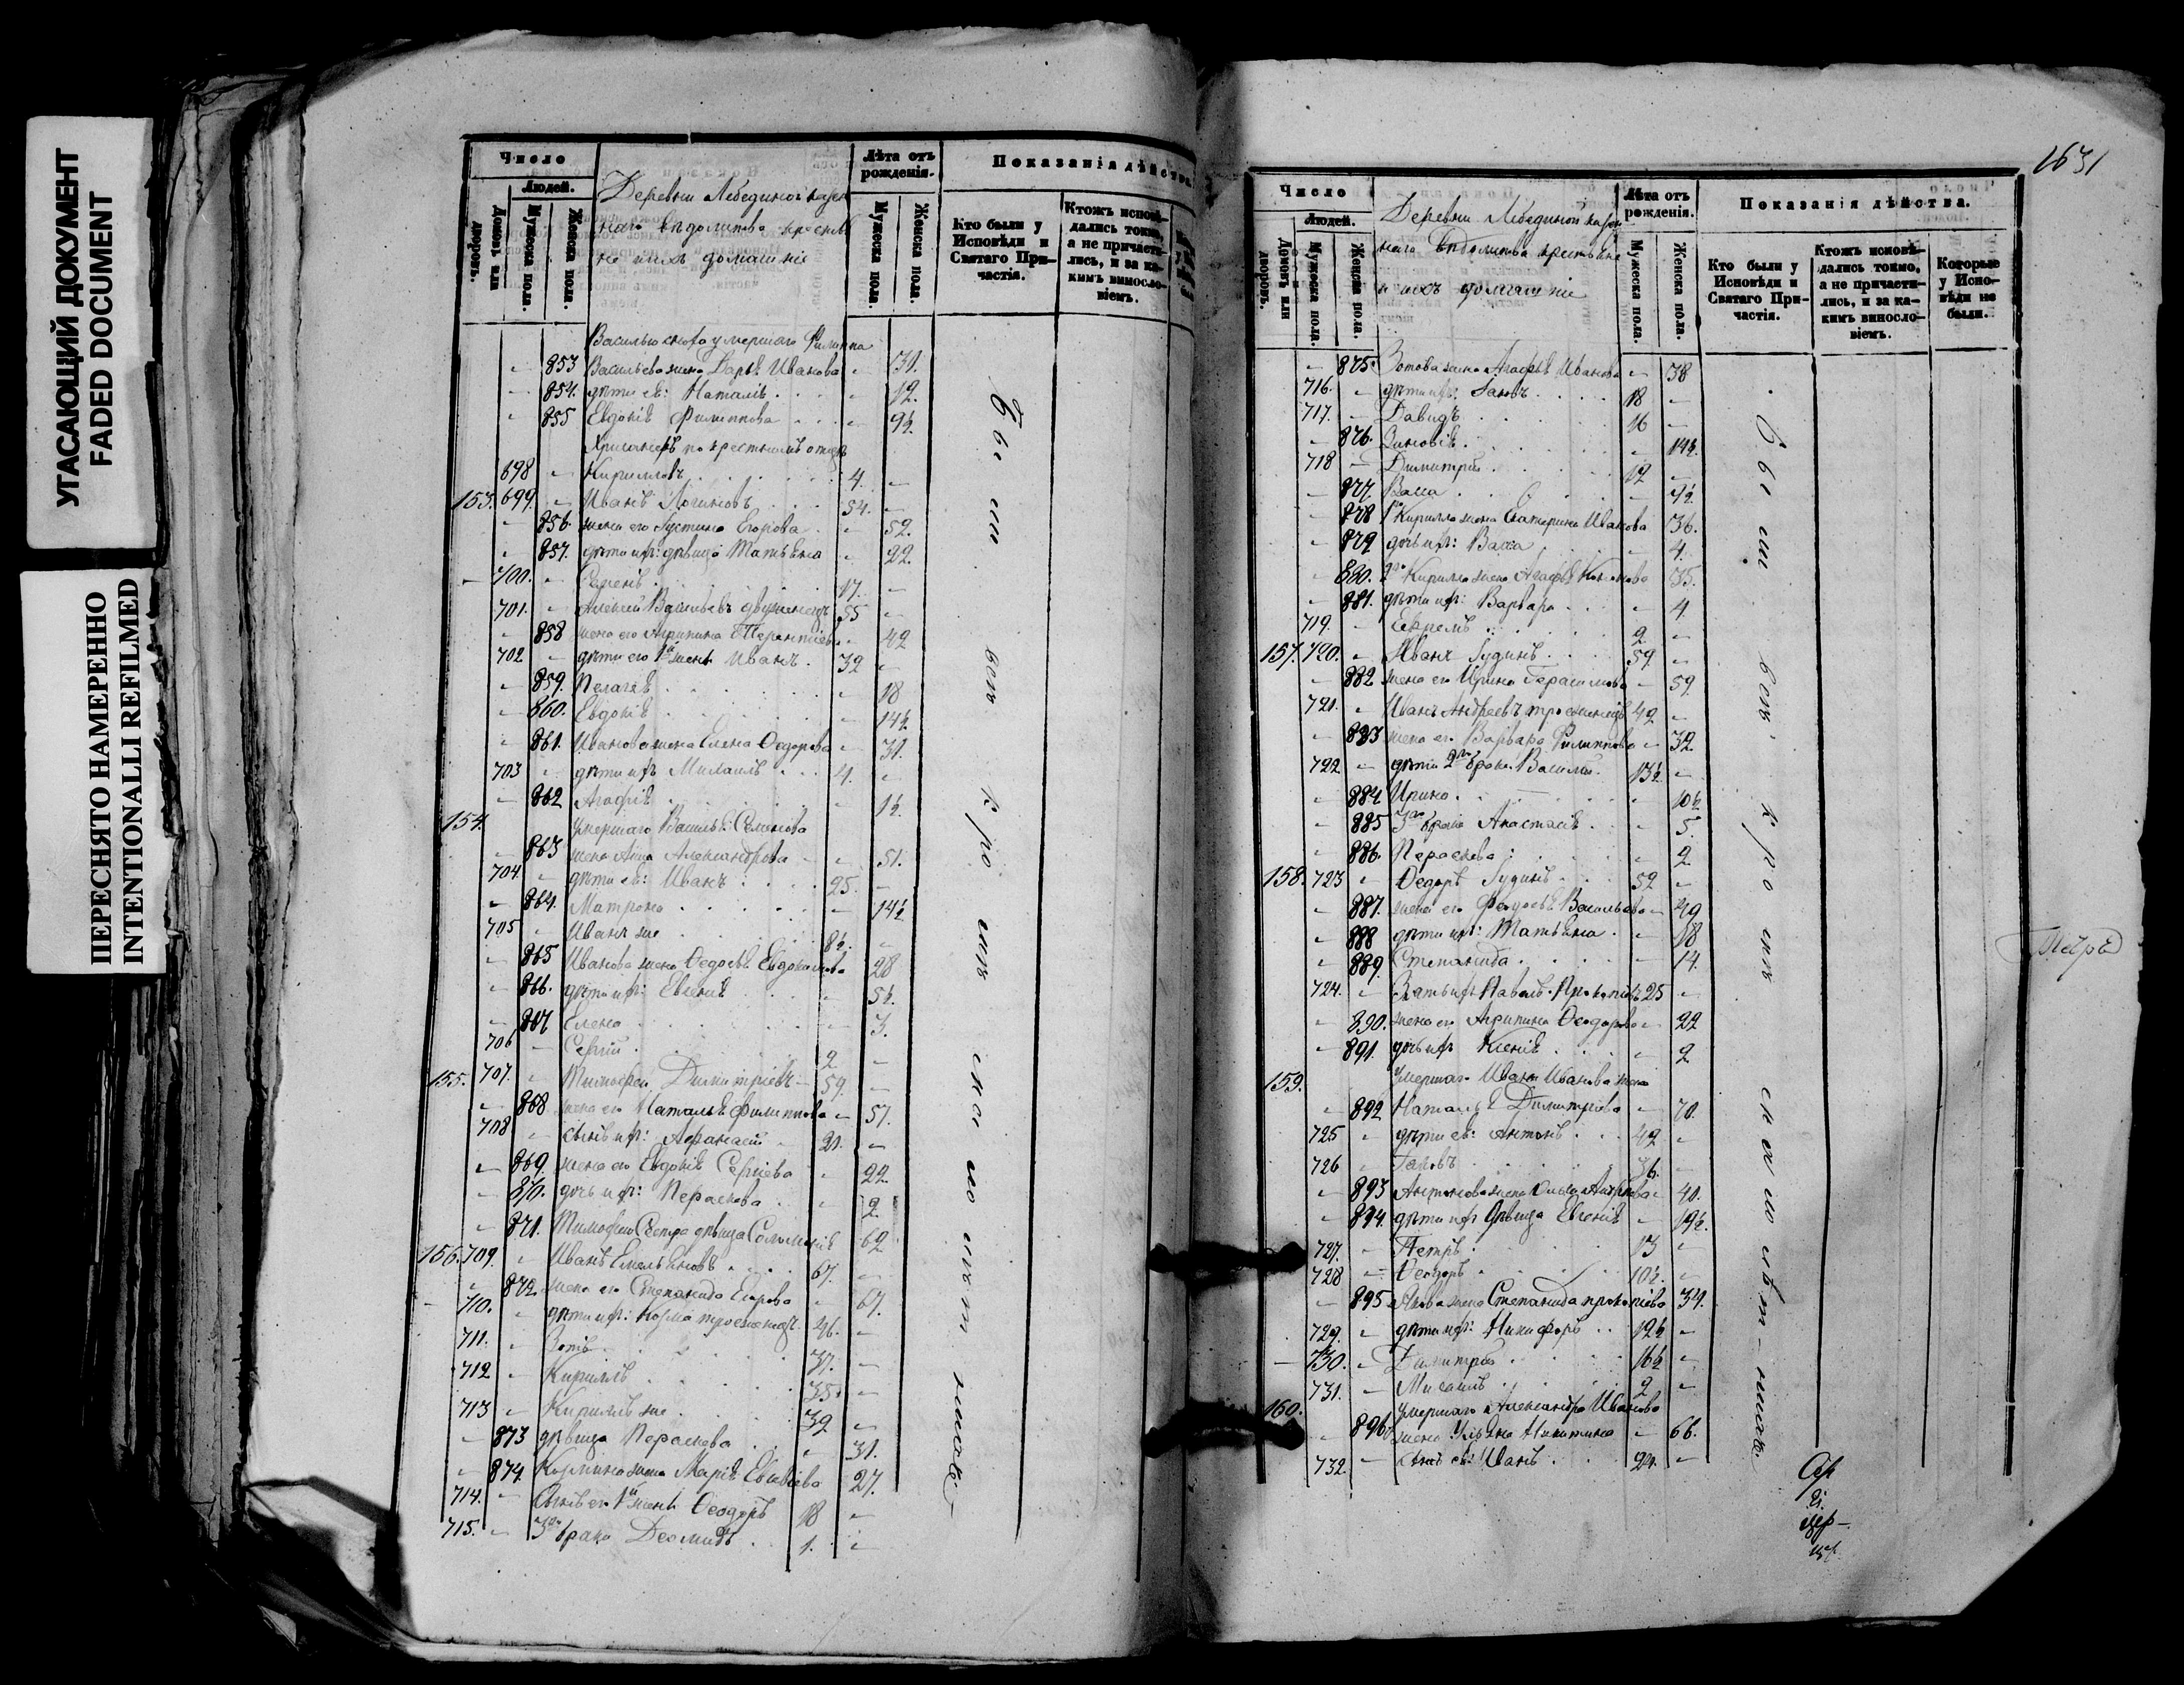 УГАСАЮЩИЙ ДОКУМЕНТ
FADED DOCUMENT
ПЕРЕСНЯТО НАМЕРЕННО
INTENTIONALLI REFILMED
Число
Людей.
Домовъ или дворовъ.
Мужеска пола.
Женска пола.
Деревни Лебединой казен
наго вѣдомства крестья
не и ихъ домашніе
Лѣта отъ рожденія.
Мужеска пола.
Женска пола.
Показанія дѣйства
Кто были у Исповѣди и Святаго Причастія.
Ктожъ исповѣдались токмо, а не причастились, и за какимъ винословіемъ.
умершаго Филиппа
853 Васильева жена Дарья Иванова 31.
854. дѣти ея: Наталія 12.
855 Евдокія Филиппова 9½
698 Кириллъ 4.
153. 699. Иванъ Логиновъ 54.
856. жена его Іустина Егорова 52.
857. дѣти ихъ: дѣвица Матрена 22.
700. Семенъ 17.
701. Алексей Васильевъ двуженецъ 55
858 жена его Агрипина Терентіева 42
702 дѣти его 1й жены Иванъ 32
859. Пелагія 18
860. Евдокія 14½
861. Иванова жена Елена Ѳедорова 31.
703 дѣти ихъ Михаилъ 4.
862 Агафія 1½
154. умершаго Василья Семенова
863 жена Анна Александрова 51.
704. дѣти ея: Иванъ 25.
864. Матрона 14½
705 Иванъ же 8½
865 Иванова жена Ѳедосья Евдокимова 28
866. дѣти ихъ: Евгенія 5½
867 Елена 3.
706 Сергій 2
155. 707. Тимофей Димитріевъ 59.
868 жена его Наталья Филиппова 57.
708 сынъ ихъ: Афанасій 21.
869. жена его Евдокія Сергіева 22
870. дочь ихъ: Параскева 2.
871. Тимофея Сестра дѣвица Соломонія 62
156. 709. Иванъ Емельяновъ 67.
872. жена его Степанида Егорова 67.
710. дѣти ихъ: Козма троеженецъ 46.
711. Зотъ 37.
712 Кириллъ 35.
713 Кириллъ же 32
873 дѣвица Параскева 31.
874. Козмина жена Марія Евсевіева 27.
714. Сынъ его 1й жены Ѳеодоръ 18
715. 3го брака Деомидъ 1.
Были вси кромѣ малолѣтныхъ
1631
Число
Людей.
Домовъ или дворовъ.
Мужеска пола.
Женска пола.
Деревни Лебединой казен
наго вѣдомства крестьяне
и ихъ домашніе
Лѣта отъ рожденія.
Мужеска пола.
Женска пола.
Показанія дѣйства.
Кто были у Исповѣди и Святаго Причастія.
Ктожъ исповѣдались токмо, а не причастились, и за какимъ винословіемъ.
Которые у Исповѣди не были.
875. Зотова жена Агафья Иванова 38
716. дѣти ихъ: Іаковъ 18
717. Давидъ 16
876. Зиновія 14½
718 Димитрій 12
877. Васса
878 1го Кирилла жена Екатерина Иванова 36.
879 дочь ихъ: Васса 4.
880. 2го Кирилла жена Агафья 35.
881. дѣти ихъ: Варвара 4
719. Ефремъ 2
157. 720. Иванъ Іудинъ 59.
882 жена его Ирина Герасимова 59
721. Иванъ Андреевъ троеженецъ 42
883 жена его Варвара Филиппова 32.
722 дѣти 2го брака Василій 13½
884 Ирина 10½
885 3го брака Анастасія 5.
886. Параскева 2
158. 723 Ѳедоръ Іудинъ 52
887. жена его Федосья Васильева 49
888 дѣти ихъ: Матрена 18
889. Степанида 14.
724. Зять ихъ Павелъ Прокопіевъ 25
890. жена его Агрипина Ѳеодорова 22
891. дочь ихъ Ксенія 2
159. Умершаго Ивана Иванова жена
892 Наталья Димитріева 70.
725 дѣти ея: Антонъ 42
726 Іаковъ 36.
893 Антонова жена 40.
894. дѣти ихъ дѣвица Евгенія 19½
727. Петръ 13
728 Ѳеодоръ 10½
895 Якова жена Степанида Прокопіева 34.
729. дѣти ихъ: Никифоръ 12½
730. Димитрій 16½
731. Михаилъ 2
160. Умершаго Александра Иванова
896 жена Ульяна Никитина 66.
732. Сынъ ея: Иванъ 24.
Были вси кромѣ малолѣтныхъ
Петръ